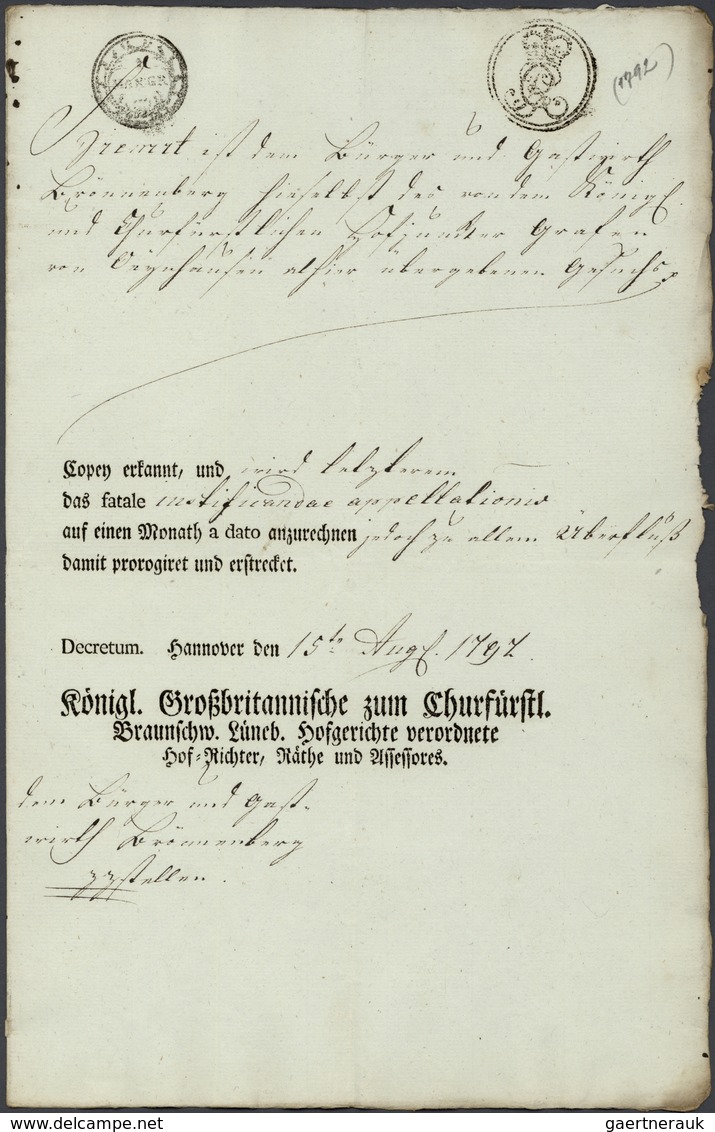 (1792)
ist dem Bürger und Gastwirth
Brönnenberg hieselbst des von dem Königl.
und Churfürstlichen Hofjuncker Grafen
von Oeynhausen alhier übergebenen Gesuchs
Copey erkannt, und wird letzterem
das fatale justificandae appellationis
auf einen Monath a dato anzurechnen jedoch zu allem Überfluß
damit prorogiret und erstrecket.
Decretum. Hannover den 15ten Aug. 1792.
Königl. Großbritannische zum Churfürstl.
Braunschw. Lüneb. Hofgerichte verordnete
Hof-Richter, Räthe und Assessores.
dem Bürger und Gast-
wirth Brönnenberg
zuzustellen.
DELCAMPE.NET
gaertnerauk